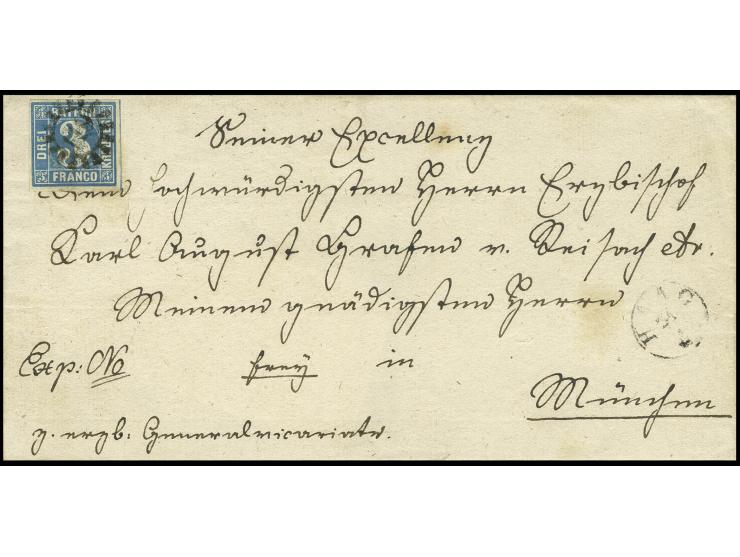 DREI
3
FRANCO
Seiner Excellenz
Dem Hochwürdigsten Herrn Erzbischof
Karl August Grafen v. Reisach etc.
Meinem gnädigsten Herrn
HAAG
Exp: No frey in
München
z. erzb: Generalvicariate.